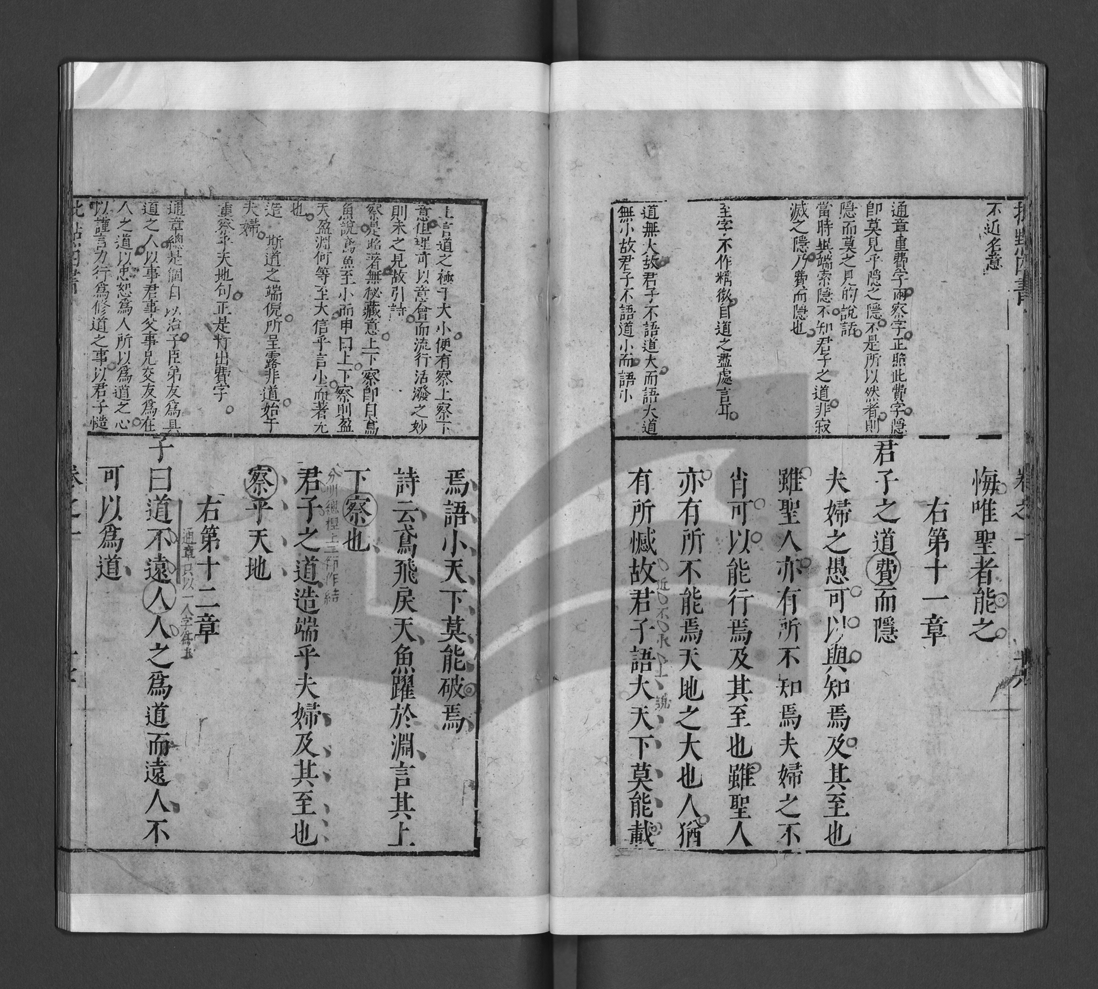 不近名意
通章重費字兩察字正照此費字隱
即莫見乎隱之隱不是所以然者則
隱而莫之見的說話
當時異端索隱不知君子之道非寂
滅之隱乃費而隱也
至字不作精微自道之盡處言耳
道無大故君子不語道大而語大道
無小故君子不語道小而語小
悔唯聖者能之
右第十一章
君子之道費而隱
夫婦之愚可以與知焉及其至也
雖聖人亦有所不知焉夫婦之不
肖可以能行焉及其至也雖聖人
亦有所不能焉天地之大也人猶
有所憾故君子語大天下莫能載
上言道之極于大小便有察上察下
意但理可以意會而流行活潑之妙
則未之見故引詩
察是昭著無秘藏意上下察即自鳶
魚說鳶魚至小而申曰上下察則盈
天盈淵何等至大信乎言小而著
也
造 斯道之端倪所呈露非道始于
夫婦
重察乎天地句正是打出費字
通章總是個自 以治子臣弟友為具
道之人以事君事父事兄交友為在
人之道以忠恕為人所以為道之心
以謹言力行為修道之事以君子慥
焉語小天下莫能破焉
詩云鳶飛戾天魚躍於淵言其上
下察也
君子之道造端乎夫婦及其至也
察乎天地
右第十二章
通章只以一人字為主
子曰道不遠人人之為道而遠人不
可以為道